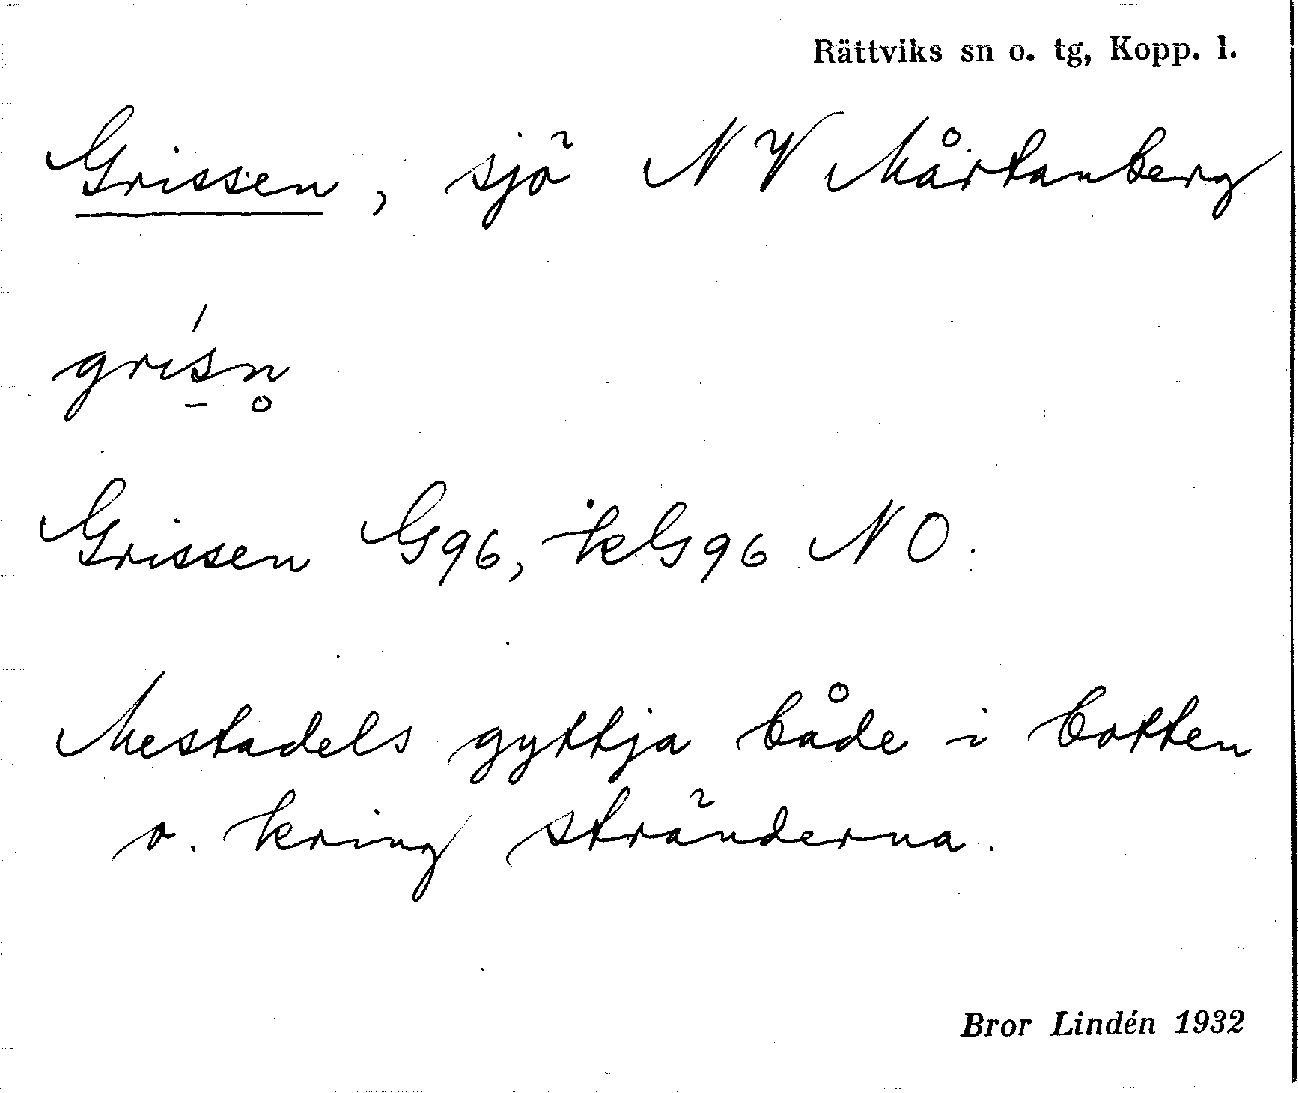 Rättviks sn o. tg, Kopp. l.
Grissen, sjö NV Mårtanberg
grı́s̠n̥
Grissen G96, kG96 NO.
Mestadels gyttja både i botten
o. kring stränderna.
Bror Lindén 1932